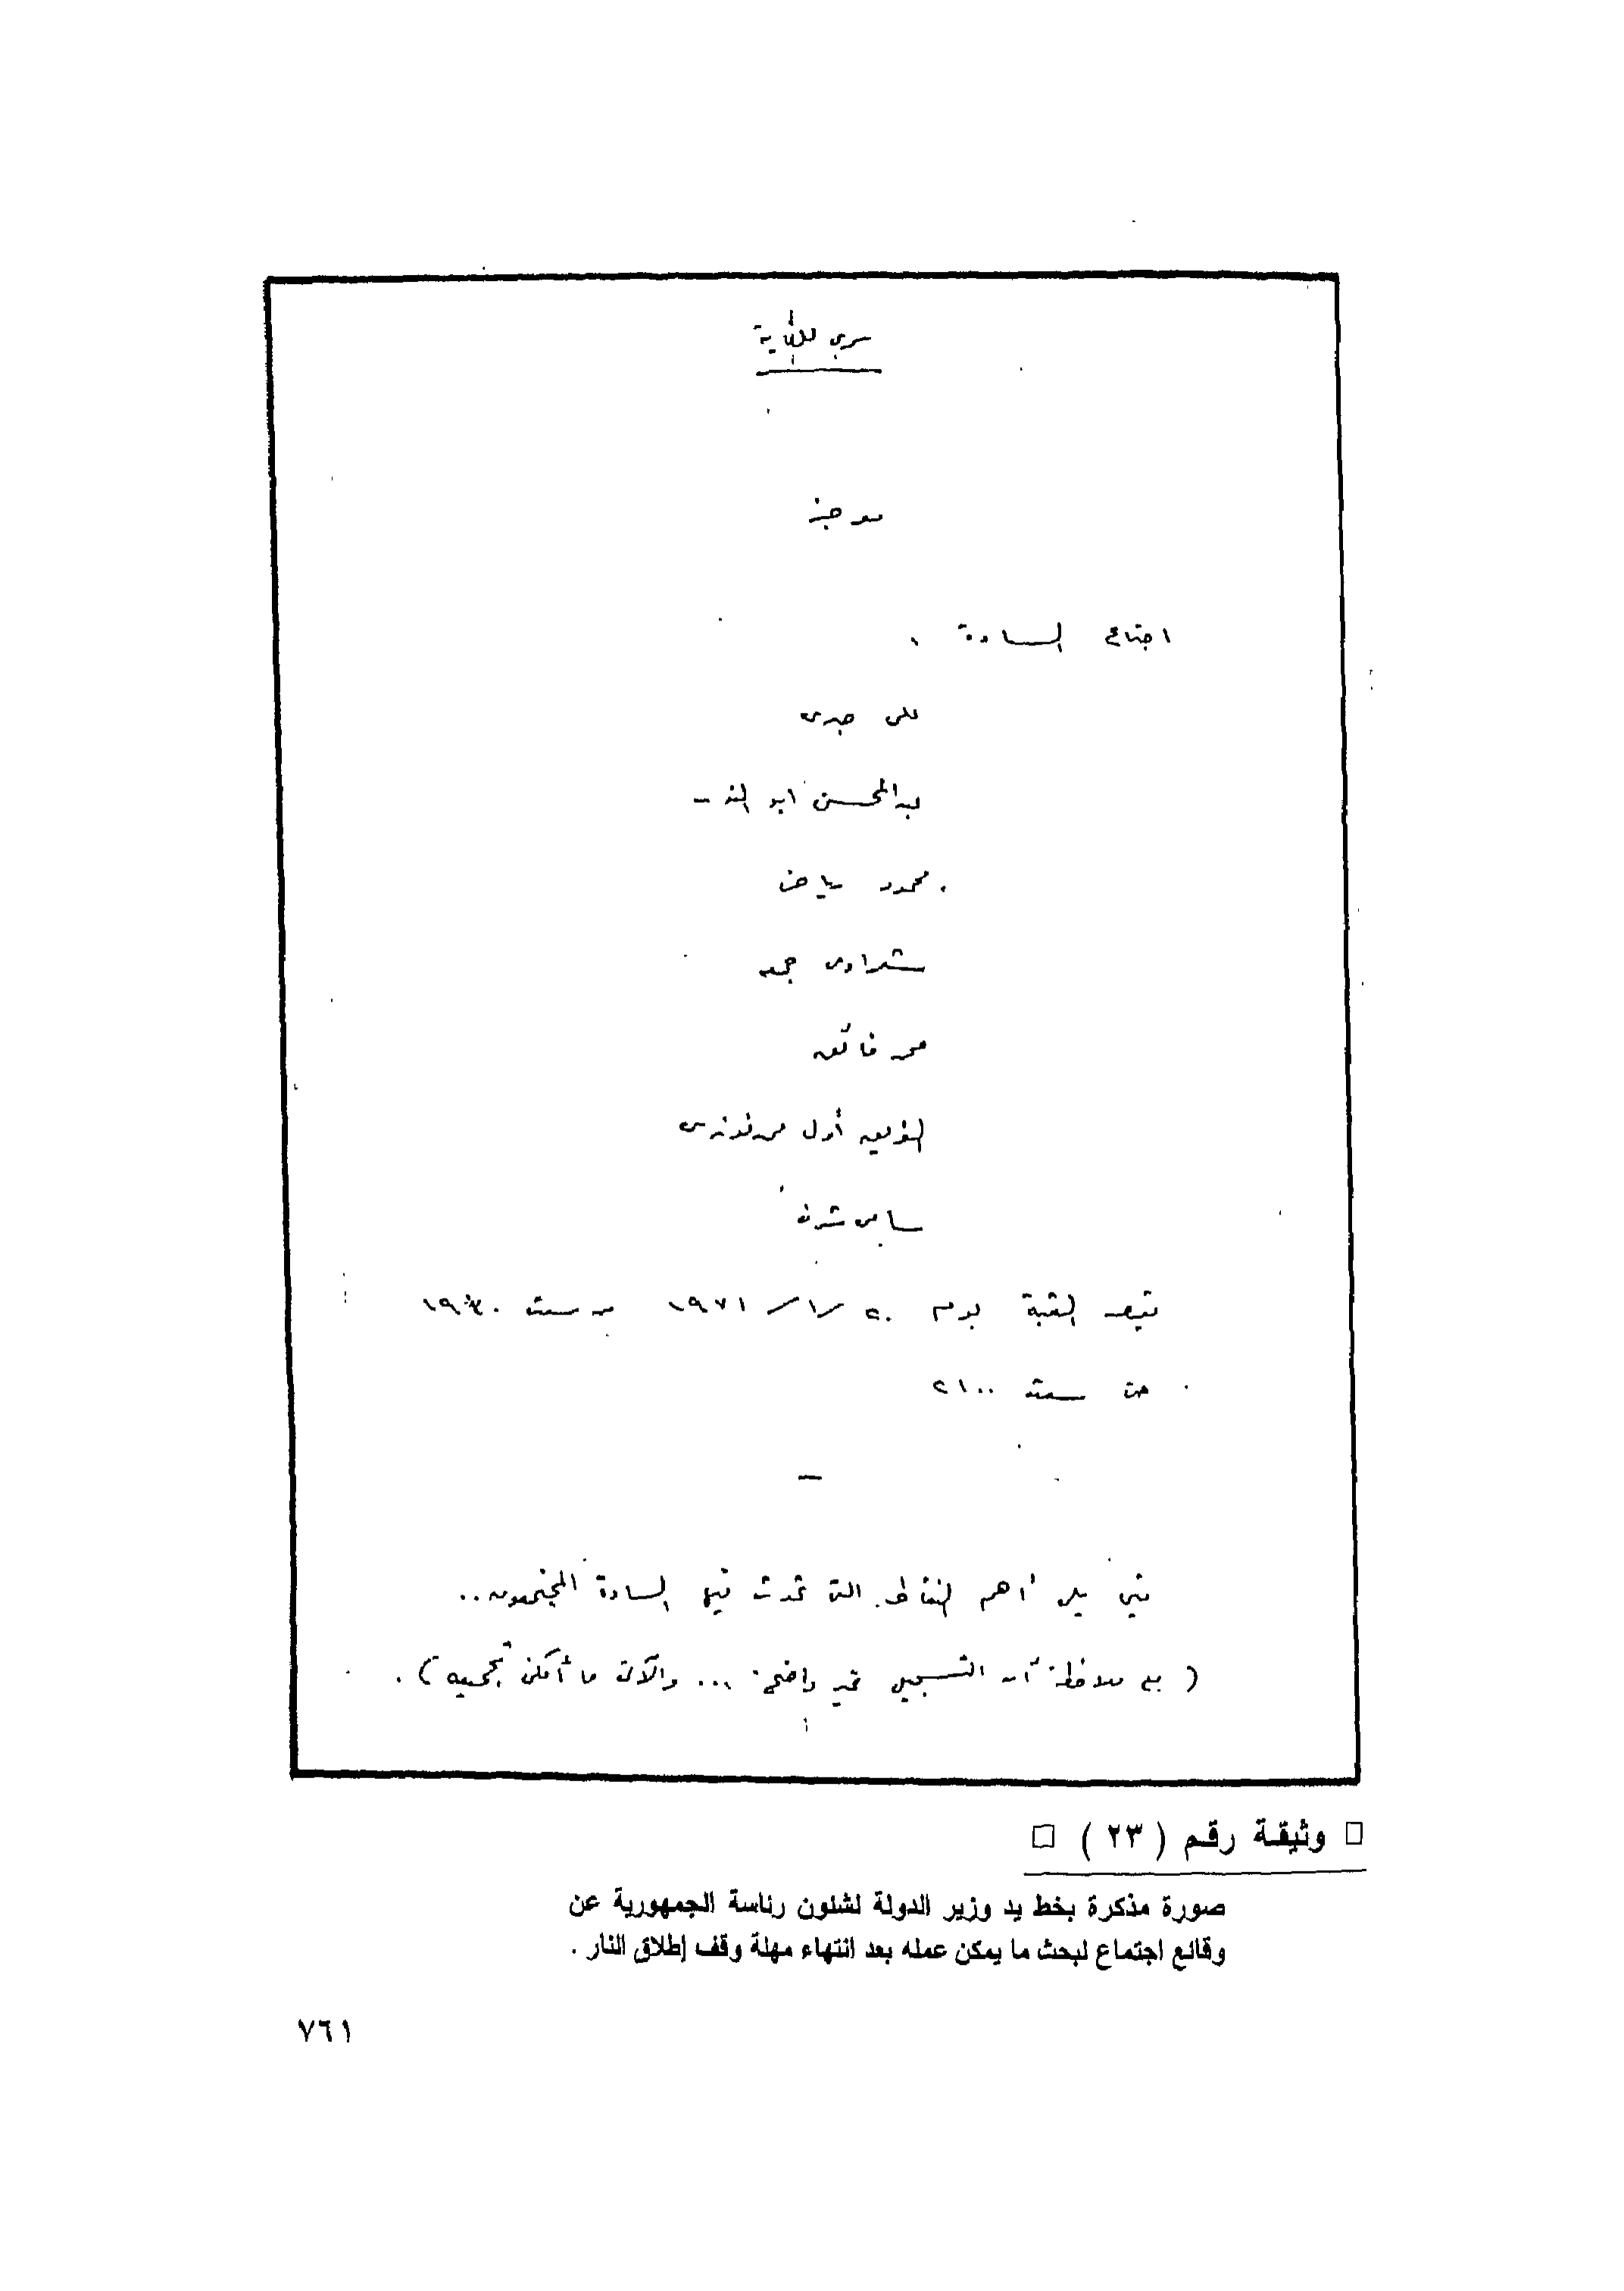 سري للغاية
موجز
اجتماع السادة .
على صبرى
عبد المحسن ابو النور
محمود رياض
شعراوى جمعه
محمد فائق
الفريق أول محمد فوزى
سامى شرف
بقصر القبة يوم ٢٠ / ١ / ١٩٧١ من ساعت
حتى ساعت ٢١٠٠
فيما يلى أهم النقاط التى تحدث فيها السادة المجتمعون ..
( مع ملاحظة أن التسجيل غير واضح ... ما أمكن تجميعه ) .
□ وثيقة رقم ( ٢٣ ) □
صورة مذكرة بخط يد وزير الدولة لشئون رئاسة الجمهورية عن
وقائع اجتماع لبحث ما يمكن عمله بعد انتهاء مهلة وقف إطلاق النار .
٧٦١